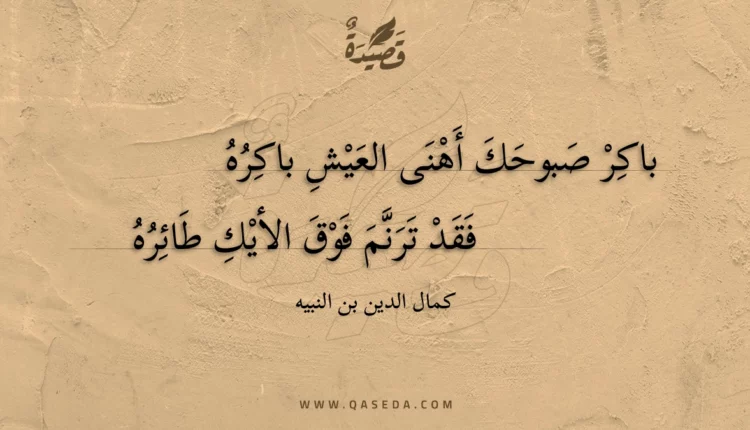 قَصِيدَةٌ
باكِرْ صَبوحَكَ أَهْنَى العَيْشِ باكِرُهُ
فَقَدْ تَرَنَّمَ فَوْقَ الأيْكِ طَائِرُهُ
كمال الدين بن النبيه
WWW.QASEDA.COM